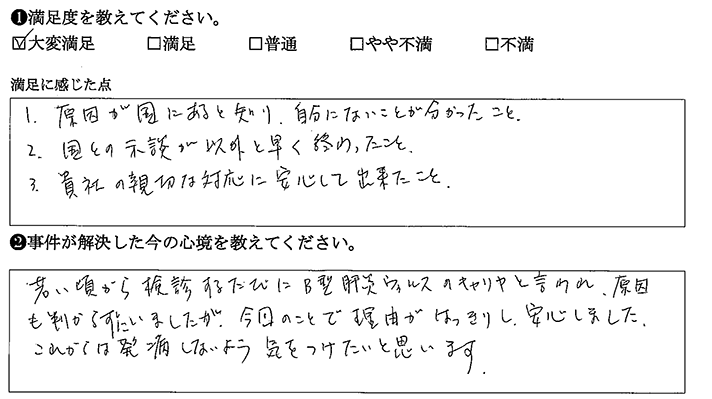 ❶満足度を教えてください。
☑大変満足 □満足 □普通 □やや不満 □不満
満足に感じた点
1. 原因が国にあると知り、自分にないことが分かったこと.
2. 国との示談が以外と早く終わったこと.
3. 貴社の親切な対応に安心して出来たこと.
❷事件が解決した今の心境を教えてください。
若い頃から検診するたびにB型肝炎ウィルスのキャリヤと言われ、原因
も判からずにいましたが、今回のことで理由がはっきりし、安心しました.
これからは発病しないよう気をつけたいと思います.